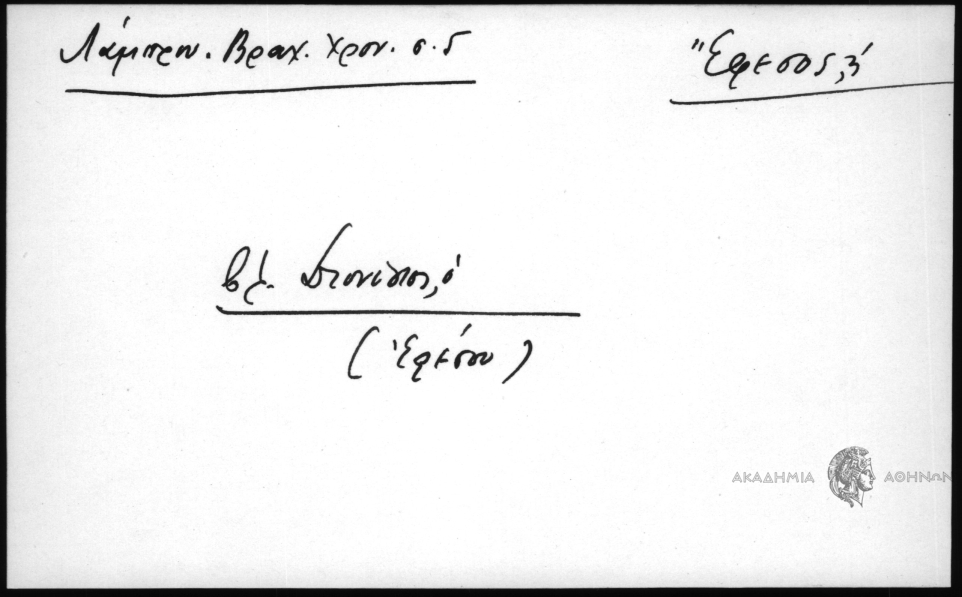 Λάμπρου. Βραχ. Χρον. σ. 5
Ἔφεσος, ἡ
βλ. Διονύσιος, ὁ
(Ἐφέσου)
ΑΚΑΔΗΜΙΑ ΑΘΗΝΩΝ